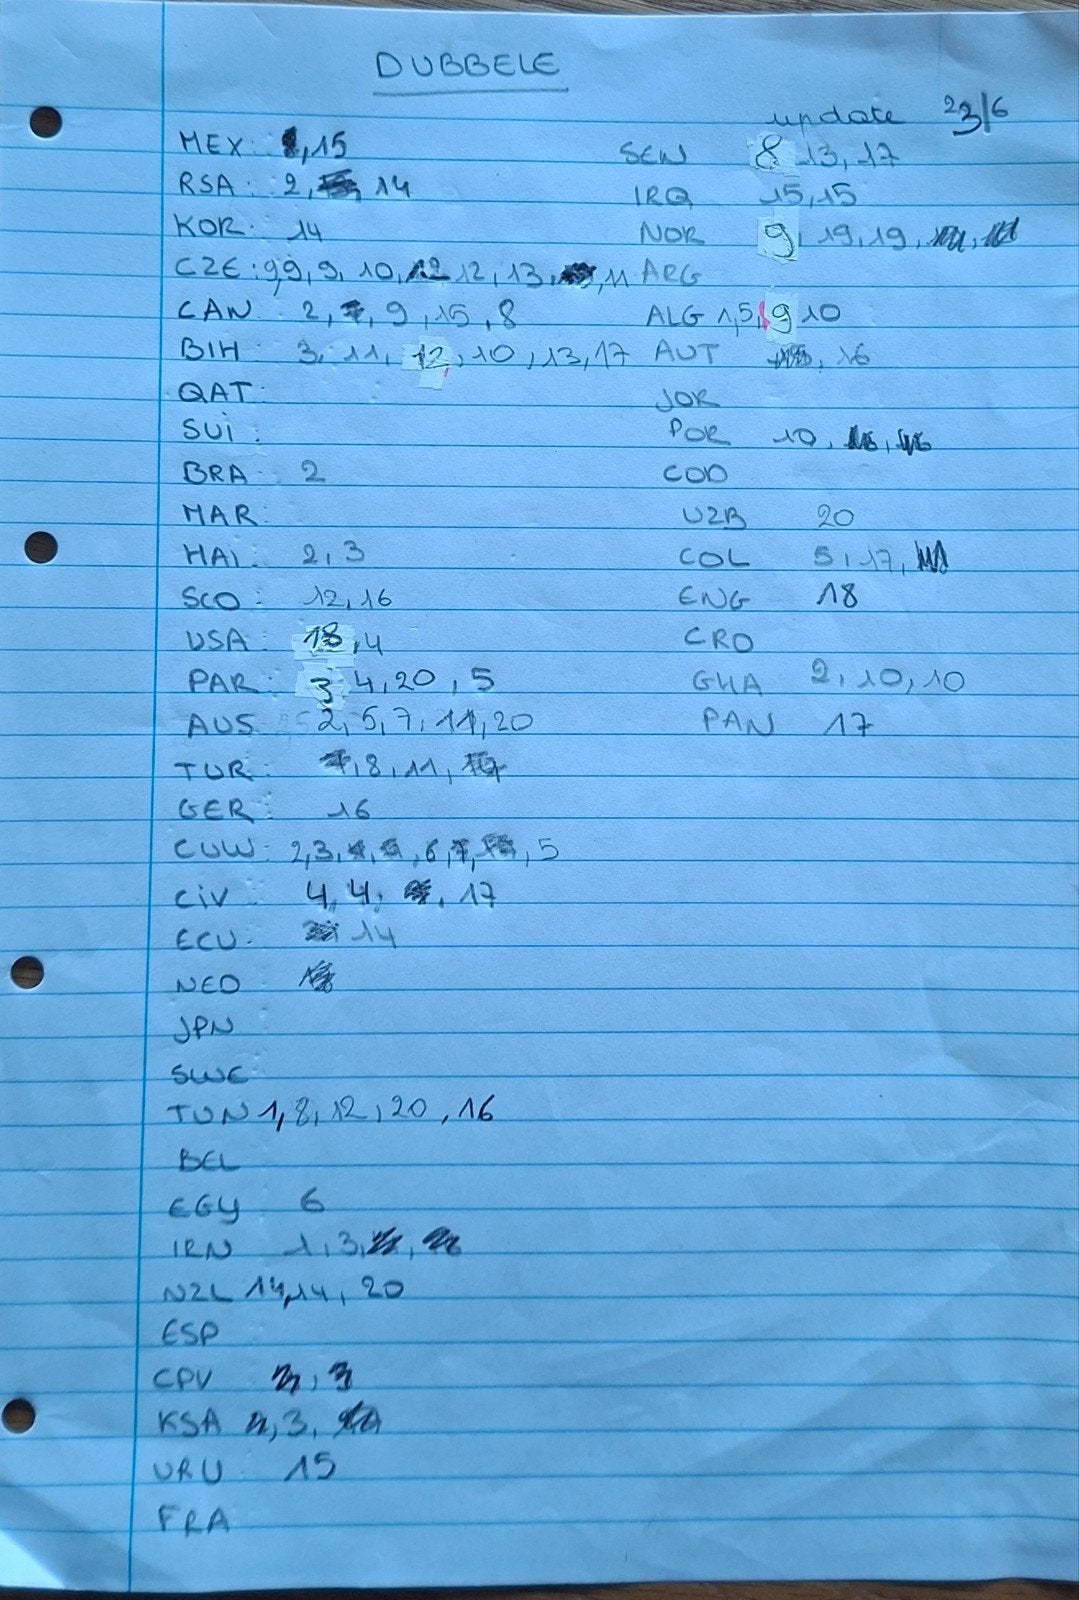 DUBBELE
update 23/6
MEX: , 15
RSA: 2, 14
KOR: 14
CZE: 9, 9, 9, 10, 12, 13, , 11
CAN: 2, , 9, 15, 8
BIH: 3, 11, 12, 10, 13, 17
QAT:
SUI:
BRA: 2
MAR:
HAI: 2, 3
SCO: 12, 16
USA: 18, 4
PAR: 3 4, 20, 5
AUS: 2, 5, 7, 11, 20
TUR: , 8, 11,
GER: 16
CUW: 2, 3, , , 6, , , 5
CIV: 4, 4, , 17
ECU: 14
NED
JPN
SWE
TUN 1, 8, 12, 20, 16
BEL
EGY 6
IRN 1, 3, ,
NZL 14, 14, 20
ESP
CPV , 3
KSA , 3,
URU 15
FRA
SEN 8 13, 17
IRQ 15, 15
NOR 9, 19, 19, ,
ARG
ALG 1, 5, 9 10
AUT , 16
JOR
POR 10, ,
COD
UZB 20
COL 5, 17,
ENG 18
CRO
GHA 2, 10, 10
PAN 17